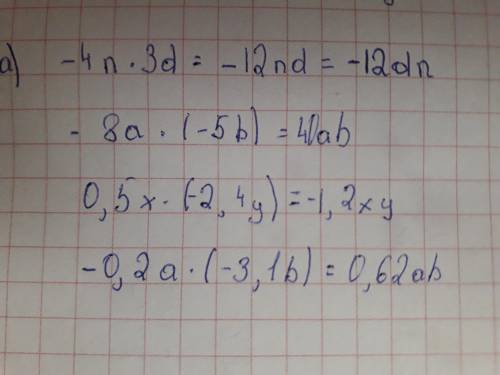 a) -4n · 3d = -12nd = -12dn
- 8a · (-5b) = 40ab
0,5x · (-2,4y) = -1,2xy
-0,2a · (-3,1b) = 0,62ab